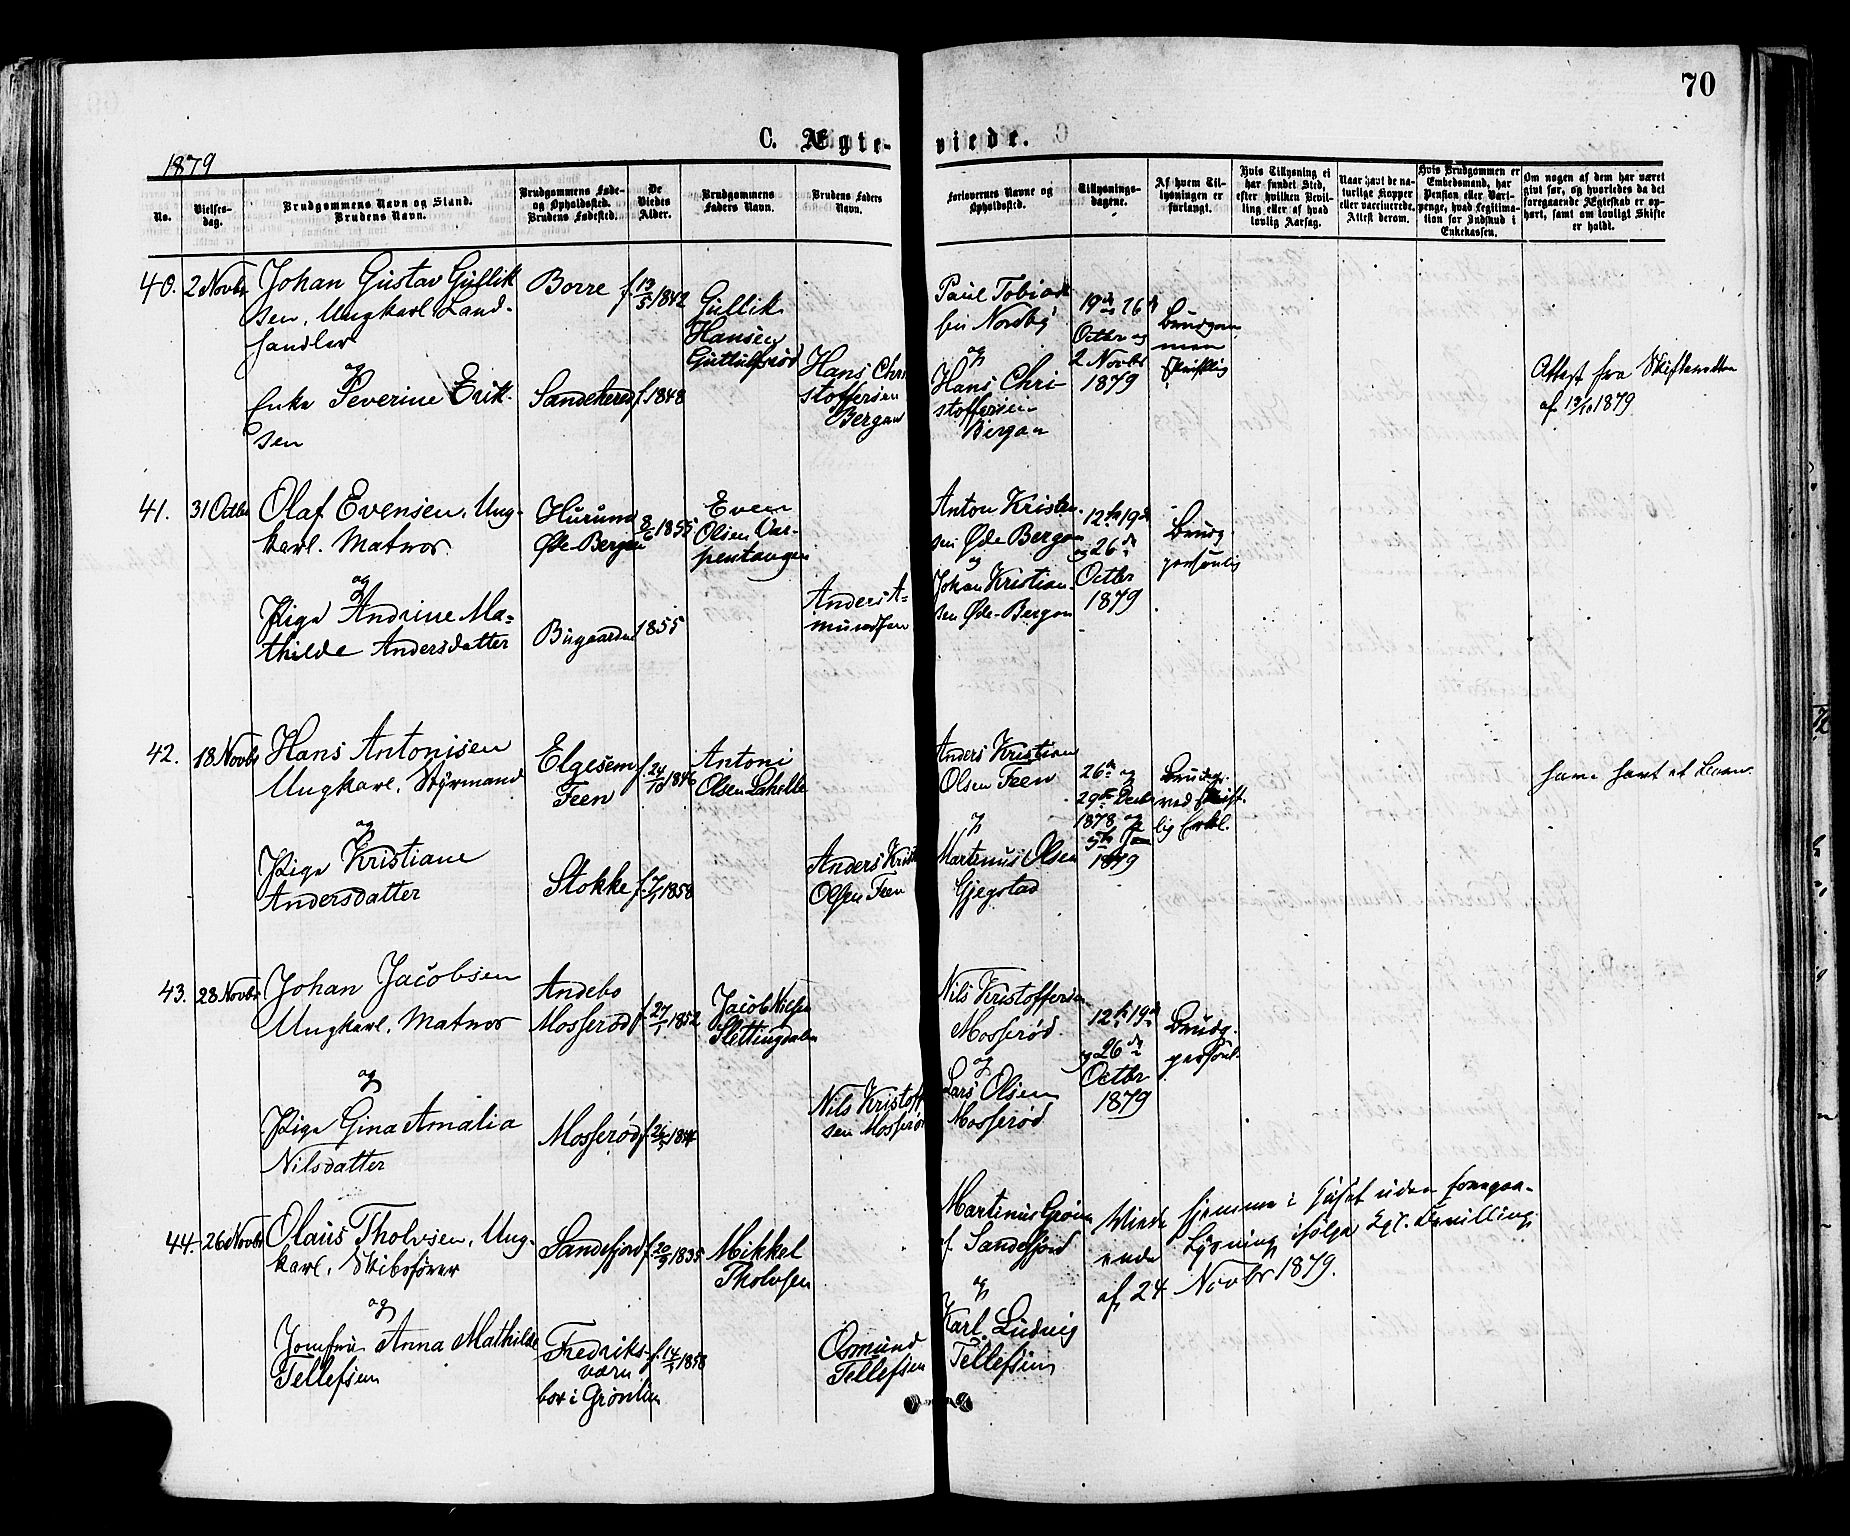 70
C. Ægte-
viede.
1879
No.
Vielses-
dag.
Brudgommens Navn og Stand.
Brudens Navn.
Brudgommens Føde-
og Opholdssted.
Brudens Fødested.
De
Viedes
Alder.
Brudgommens
Faders Navn.
Brudens Faders
Navn.
Forlovernes Navne og
Opholdssted.
Tillysnings-
dagene.
Af hvem Til-
lysningen er
forlangt.
Hvis Tillysning ei
har fundet Sted,
efter hvilken Bevil-
ling eller af hvad
lovlig Aarsag.
Naar havt de na-
turlige Kopper
eller vaccinerede.
Attest derom.
Hvis Brudgommen er
Embedsmand, har
Pension eller Var-
penge, hvad Legitima-
tion for Indskud i
Enkekassen.
Om nogen af dem har været
givt før, og hvorledes da det
foregaaende Ægteskab er op-
hørt, samt om lovligt Skifte
er holdt.
40.
2 Novbr
Johan Gustav Gullik
sen, Ungkarl Land-
handler
og
Enke Severine Erik-
sen
Borre
Sandeherred
f. 13/5 1842
f. 1848
Gullik
Hansen
Hans Chri
stoffersen
Bergan
Paul Tobias
sen Nordby
og
Hans Chri
stoffersen
Bergan
19de 26de
Octbr og
2 Novbr
1879
Brudgom
men
skriftlig
Attest fra Skifteretten
af 13/10 1879
41.
31 Octbr
Olaf Evensen, Ung-
karl. Matros.
og
Pige Andrine Ma-
thilde Andersdatter
Hurum
Øde-Bergan
Bugaarden
8/6 1855
1855
Even
Olsen Var-
pentangen
Anders A-
mundsen
Anton Kristen-
sen Øde Bergan
og
Johan Kristian-
sen Øde-Bergan
12te 19de
og 26de
Octbr
1879
Brudg.
personlig
42.
18 Novbr
Hans Antonisen
Ungkarl, Styrmand
og
Pige Kristiane
Andersdatter
Elgesem
Feen
Stokke
f. 24/10 1846
f. 7/1 1858
Antoni
Olsen Lahelle
Anders Krist
Olsen Feen
Anders Kristian
Olsen Feen
og
Martinus Olsen
Gjegstad
26de og
29de Decbr
1878 og
5te Jan
1879
Brudg.
ved skrift-
lig Erkl.
have havt et Barn.
43.
28 Novbr
Johan Jacobsen
Ungkarl, Matros
og
Pige Gina Amalia
Nilsdatter
Andebo
Mosserød
Mosserød
f. 27/1 1852
Jacob Nilsen
Slettingdalen
Nils Kristoff
sen Mosserød
Nils Kristoffersen
Mosserød
og
Lars Olsen
Mosserød
12te 19de
og 26de
Octbr
1879
Brudg.
personl.
44.
26 Novbr
Olaus Tholvsen, Ung-
karl, Skibsfører
og
Jomfru Anna Mathilde
Tellefsen
Sandefjord
Fredriks-
værn
bor i Grønlien
f. 20/9 1835
1858
Mikkel
Tholvsen
Osmund
Tellefsen
Martinus Grøn
af Sandefjord
og
Karl Ludvig
Tellefsen
Viede hjemme i Huset uden foregaa-
ende Lysning ifølge Kgl. Bevilling
af 24 Novbr 1879.